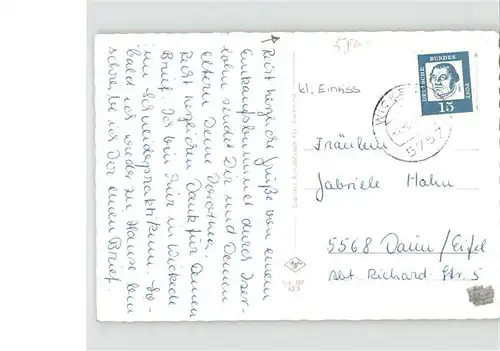 Recht herzliche Grüße von einem
Einkaufsbummel durch Iser-
lohn sendet Dir und Deinen
Eltern Deine Dorothea.
Recht herzlichen Dank für Deinen
Brief. Ich bin hier in Wickede
im Schneiderpraktikum. So-
bald ich wieder zu Hause bin
schreibe ich Dir einen Brief.
kl. Einriss
DEUTSCHE BUNDES POST
15
5757
Fräulein
Gabriele Hahn
5568 Daun/Eifel
Abt. Richard-Str. 5